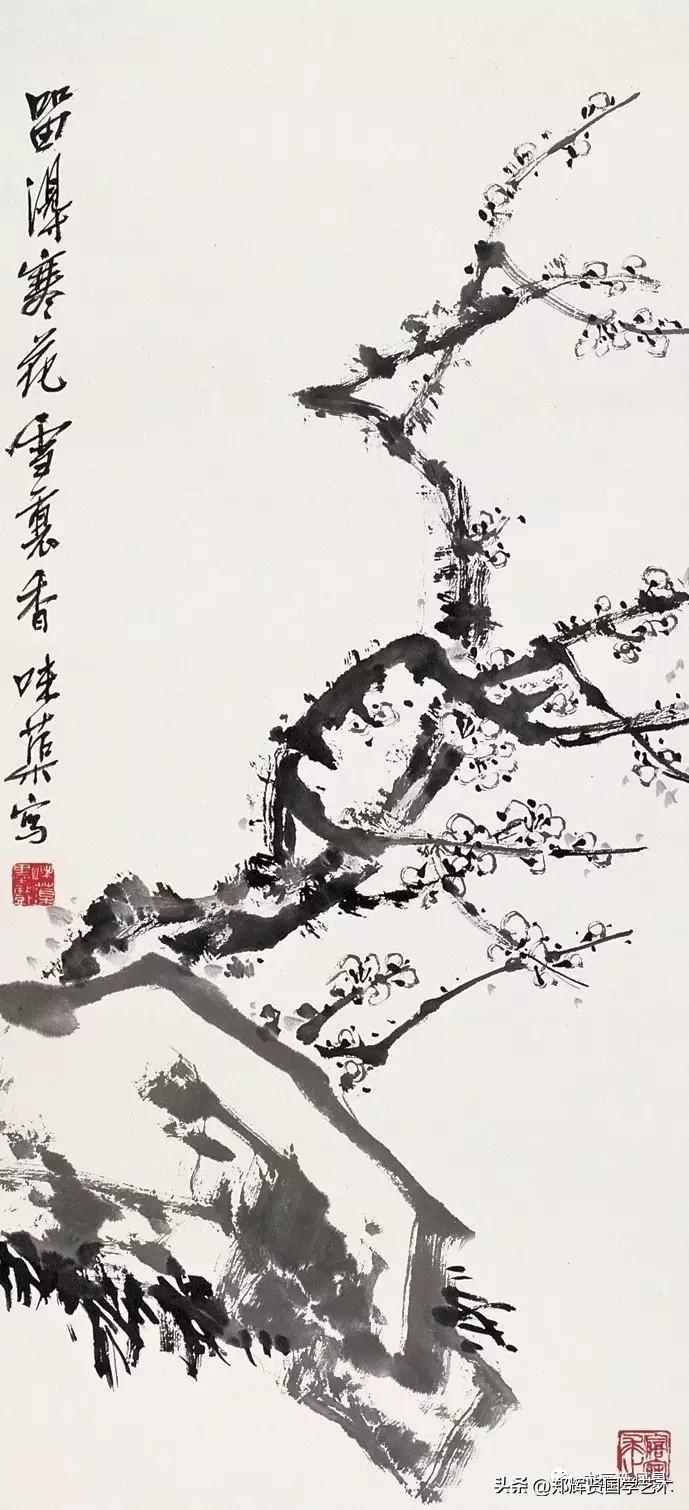 留得寒花雪裏香 味蕖寫
头条 @郑辉贤国学艺术